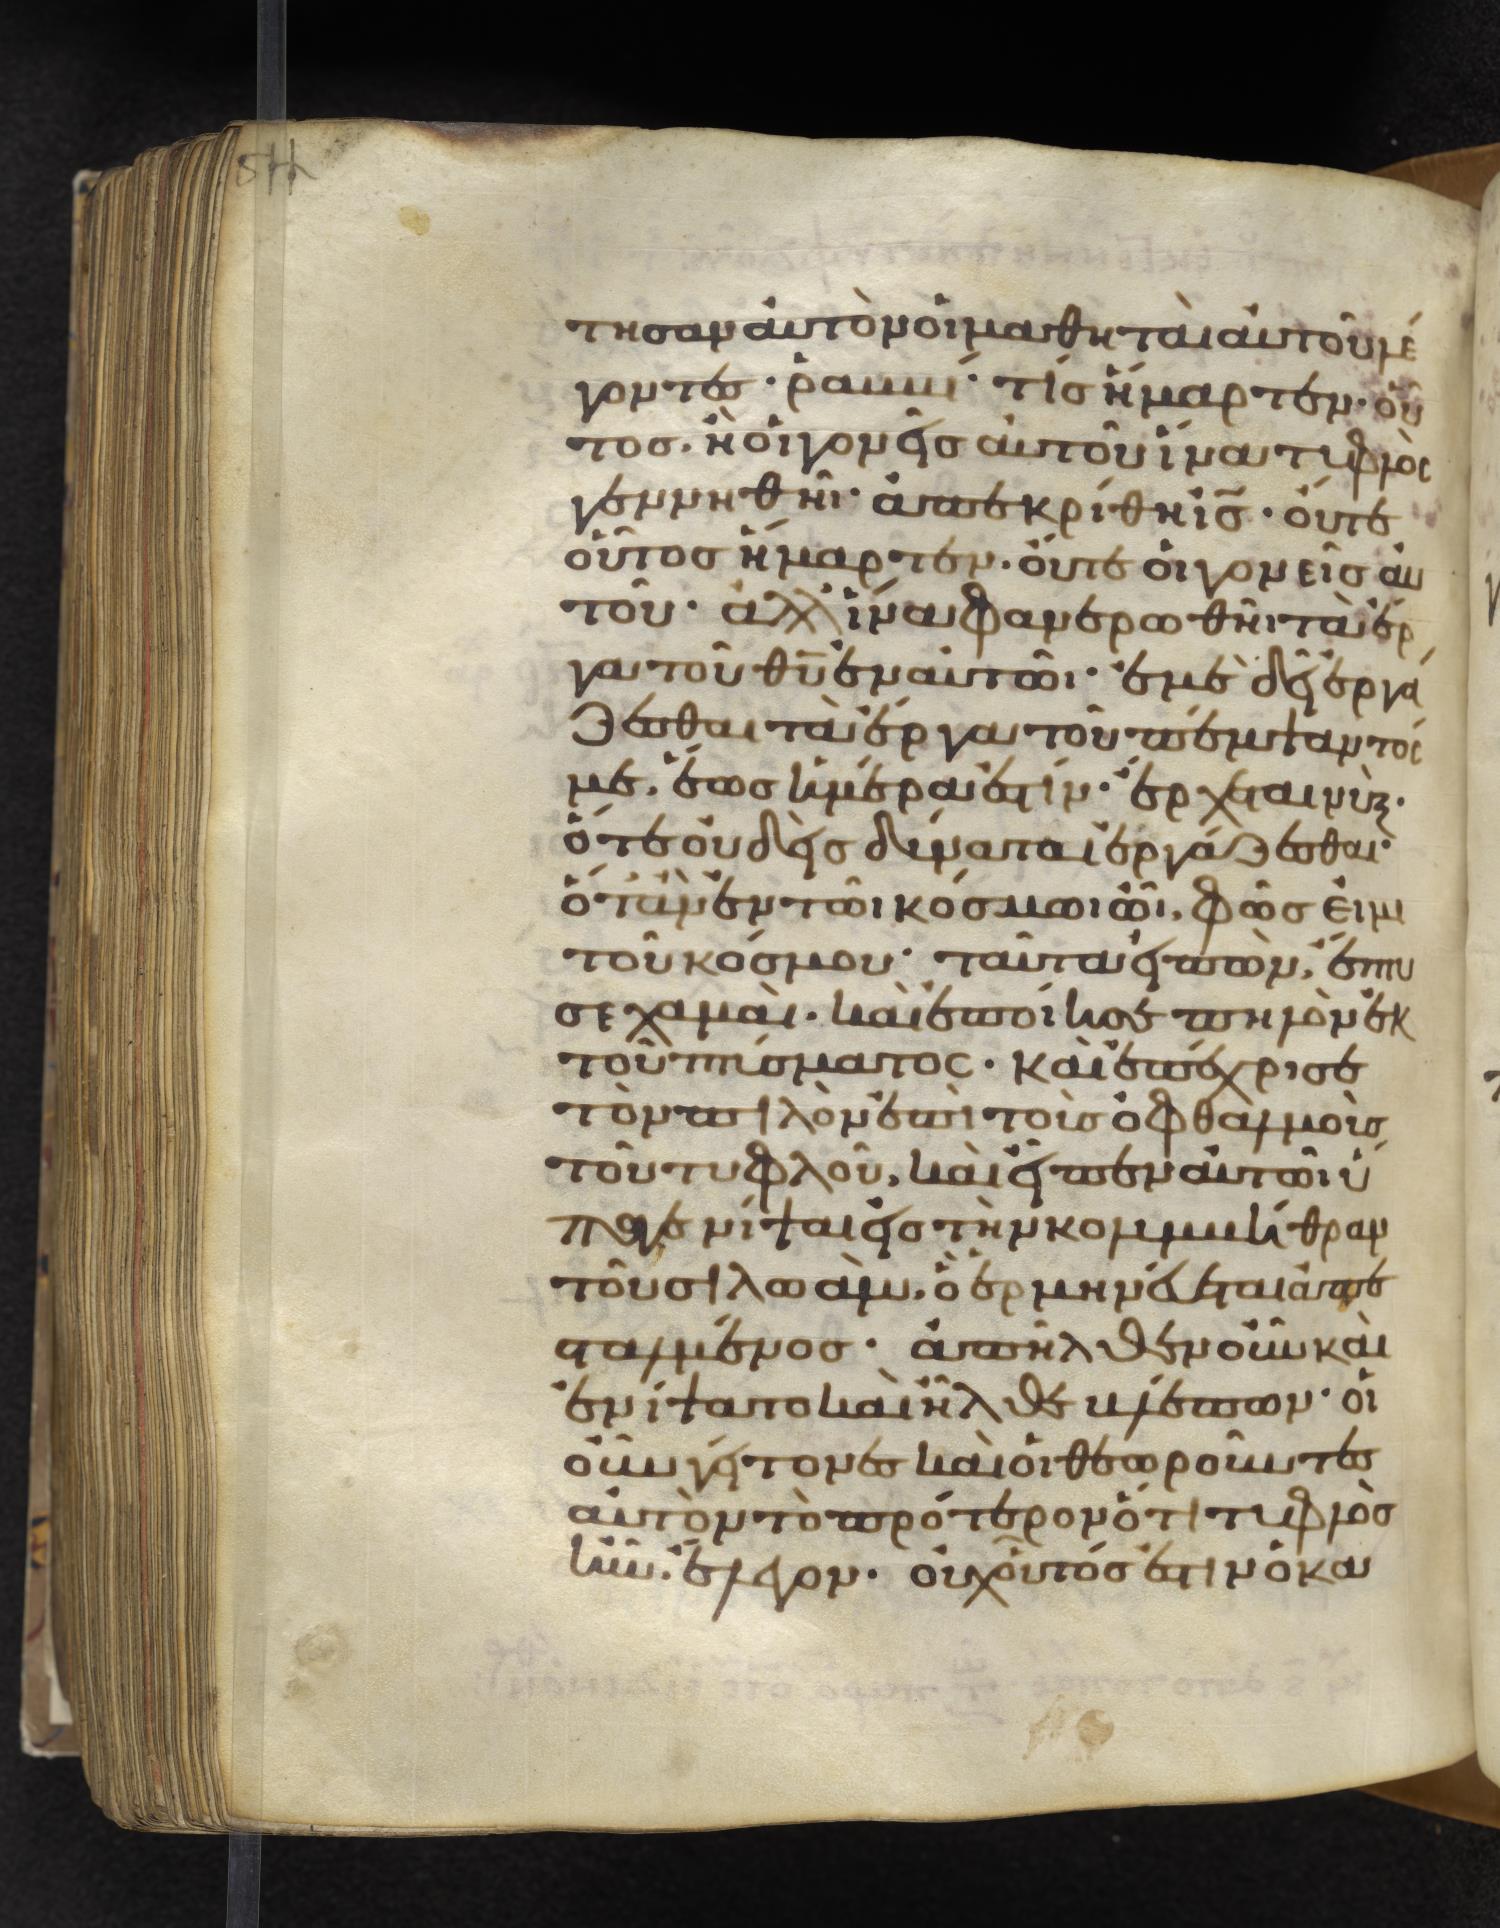 τησαν ἀυτὸν ὁι μαθηταὶ ἀυτοῦ λέ
γοντες · ῥαββί · τίς ἥμαρτεν · οὗ
τος . ἢ ὁι γονεῖς ἀυτοῦ ἵνα τυφλὸς
γεννηθῆι · ἀπεκρίθη ὁ ις̄ · ὄυτε
οὗτος ἥμαρτεν · ὄυτε ὁι γονεῖς ἀυ
τοῦ · ἀλλ' ἵνα φανερωθῆι τὰ ἔρ
γα τοῦ θῡ ἐν ἀυτῶι · ἐμὲ δεῖ ἐργά
ζεσθαι τὰ ἔργα τοῦ πέμψαντός
με . ἕως ἡμέρα ἐστίν · ἔρχεται νὺξ ·
ὅτε ὀυδεὶς δύναται ἐργάζεσθαι ·
ὅταν ἐν τῶι κόσμωι ὦι , φῶς ἐιμι
τοῦ κόσμου · ταῦτα ἐιπὼν , ἔπτυ
σε χαμαὶ · καὶ ἐποίησε πηλὸν ἐκ
τοῦ πτύσματος · καὶ ἐπέχρισε
τὸν πηλὸν ἐπὶ τοὶς ὀφθαλμοὶς
τοῦ τυφλοῦ , καὶ εἶπεν ἀυτῶι ὕ
παγε νίψαι ἐις τὴν κολυμβήθραν
τοῦ σιλωὰμ , ὃ ἑρμηνέυεται ἀπε
σταλμένος · ἀπῆλθεν οὖν καὶ
ἐνίψατο καὶ ἦλθε βλέπων · ὁι
οὖν γείτονες καὶ ὁι θεωροῦντες
ἀυτὸν τὸ πρότερον ὅτι τυφλὸς
ἦν . ἔλεγον · ὀυχ οὗτός ἐστιν ὁ κα